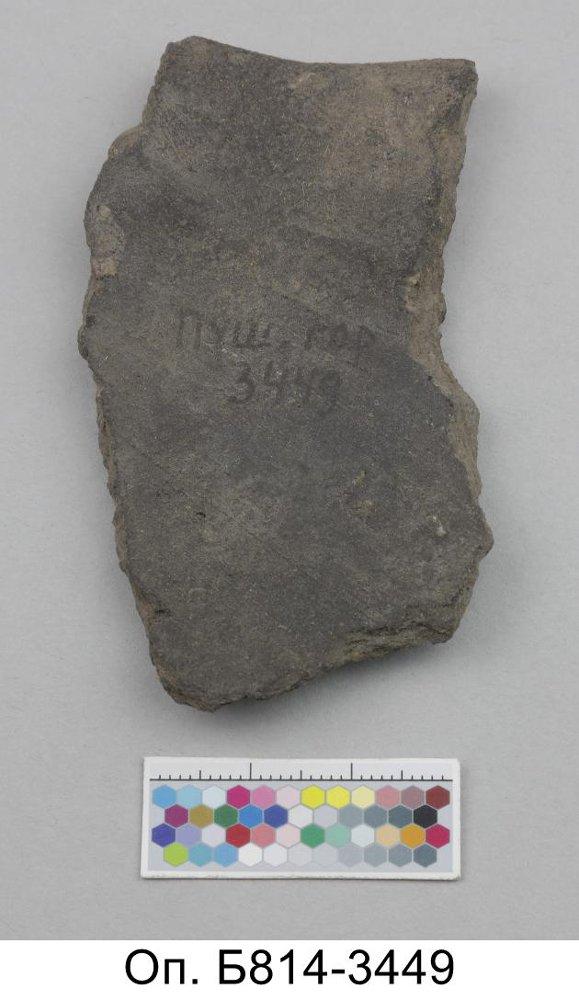 Пуш. гор
3449
Оп. Б814-3449